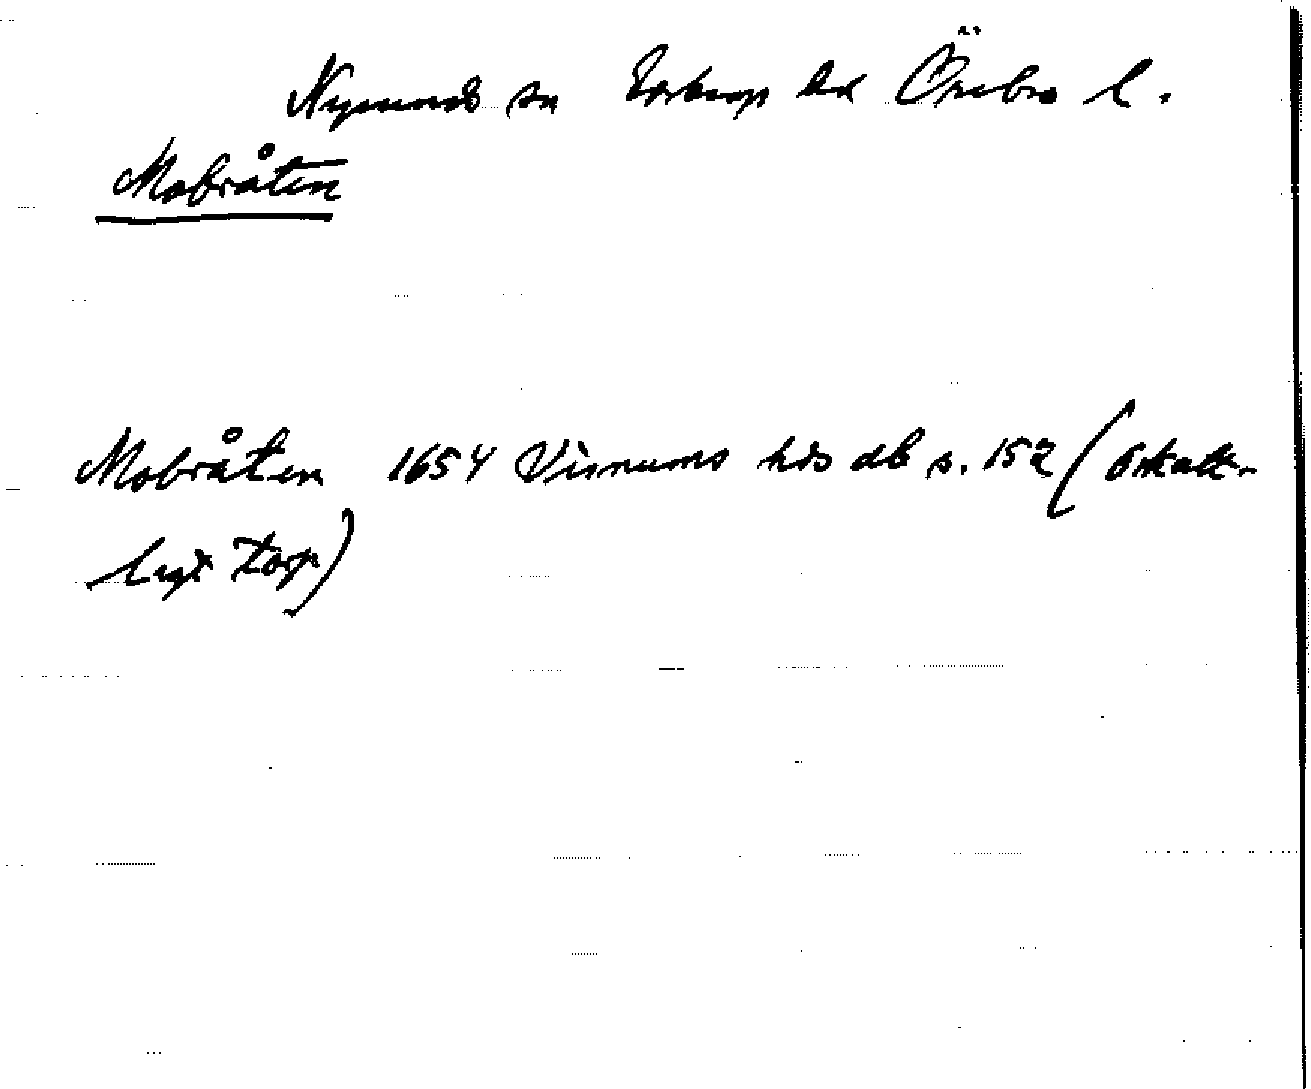 Nysunds sn Edsbergs hd Örebro l.
Mobråten
Mobråten 1654 Visnums hds db s. 152 (Oskatt-
lagt torp)